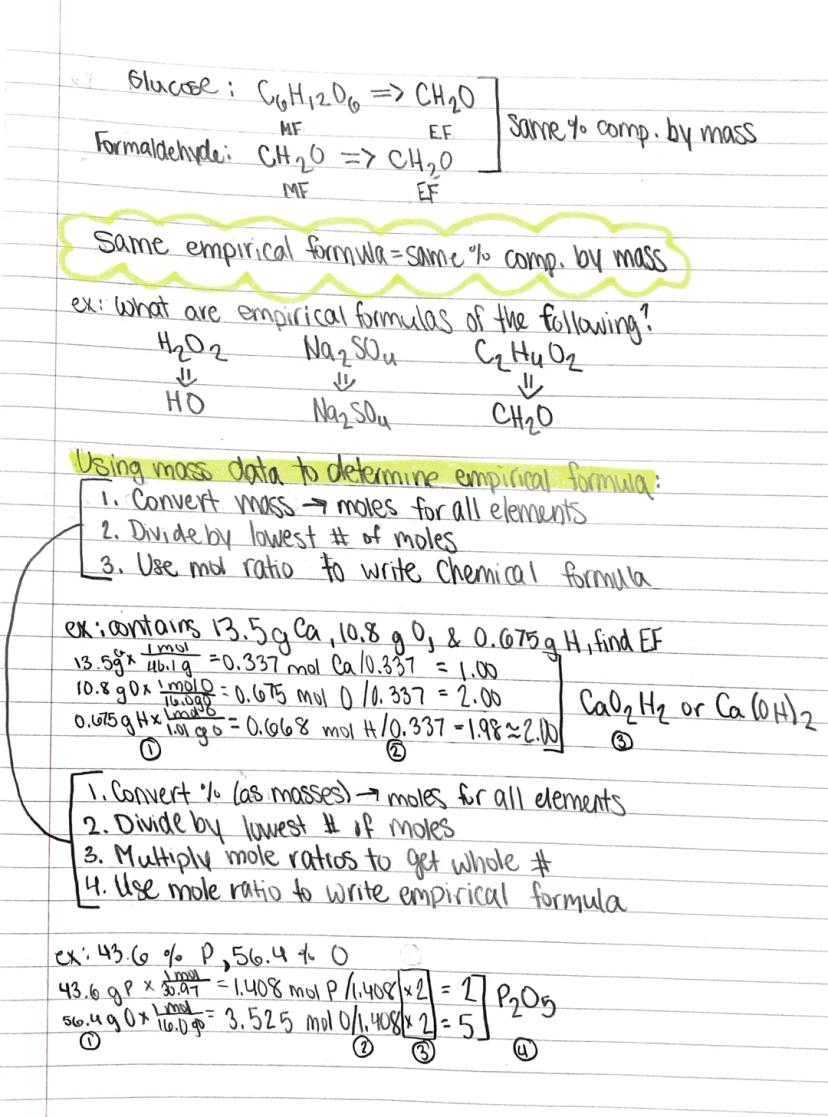 Glucose: C6H12O6 => CH2O
MF EF
Same % comp. by mass
Formaldehyde: CH2O => CH2O
MF EF
Same empirical formula = same % comp. by mass
ex: What are empirical formulas of the following?
H2O2 Na2SO4 C2H4O2
⇓ ⇓ ⇓
HO Na2SO4 CH2O
Using mass data to determine empirical formula:
1. Convert mass → moles for all elements
2. Divide by lowest # of moles
3. Use mol ratio to write Chemical formula
ex: contains 13.5 g Ca, 10.8 g O, & 0.675 g H, find EF
13.5g x 1 mol / 40.1 g = 0.337 mol Ca / 0.337 = 1.00
10.8 g O x 1 mol O / 16.0 g O = 0.675 mol O / 0.337 = 2.00
0.675 g H x 1 mol / 1.01 g = 0.668 mol H / 0.337 = 1.98 ≈ 2.00
CaO2H2 or Ca(OH)2
① ② ③
1. Convert % (as masses) → moles for all elements
2. Divide by lowest # of moles
3. Multiply mole ratios to get whole #
4. Use mole ratio to write empirical formula
ex: 43.6 % P, 56.4 % O
43.6 g P x 1 mol / 30.97 = 1.408 mol P / 1.408 x 2 = 2
56.4 g O x 1 mol / 16.0 g O = 3.525 mol O / 1.408 x 2 = 5
P2O5
① ② ③ ④